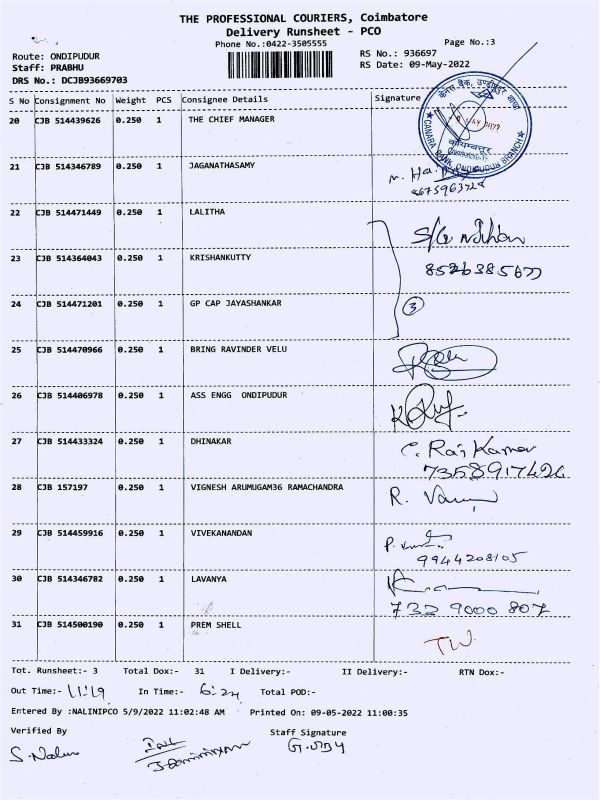 THE PROFESSIONAL COURIERS, Coimbatore
Delivery Runsheet - PCO
Phone No.:0422-3505555 Page No.:3
Route: ONDIPUDUR RS No.: 936697
Staff: PRABHU RS Date: 09-May-2022
DRS No.: DCJB93669703
S No Consignment No Weight PCS Consignee Details Signature
20 CJB 514439626 0.250 1 THE CHIEF MANAGER
केनरा बैंक
कोयम्बत्तूर
CANARA BANK, ONDIPUDUR BRANCH
21 CJB 514346789 0.250 1 JAGANATHASAMY
22 CJB 514471449 0.250 1 LALITHA
S/G
23 CJB 514364043 0.250 1 KRISHANKUTTY
24 CJB 514471201 0.250 1 GP CAP JAYASHANKAR
3
25 CJB 514470966 0.250 1 BRING RAVINDER VELU
26 CJB 514406978 0.250 1 ASS ENGG ONDIPUDUR
27 CJB 514433324 0.250 1 DHINAKAR C. Raj Kumar
28 CJB 157197 0.250 1 VIGNESH ARUMUGAM36 RAMACHANDRA R.
29 CJB 514459916 0.250 1 VIVEKANANDAN P.
9944208105
30 CJB 514346782 0.250 1 LAVANYA
732 9000 807
31 CJB 514500190 0.250 1 PREM SHELL
Tot. Runsheet:- 3 Total Dox:- 31 I Delivery:- II Delivery:- RTN Dox:-
Out Time:- 11:19 In Time:- 6:24 Total POD:-
Entered By :NALINIPCO 5/9/2022 11:02:48 AM Printed On: 09-05-2022 11:00:35
Verified By Staff Signature